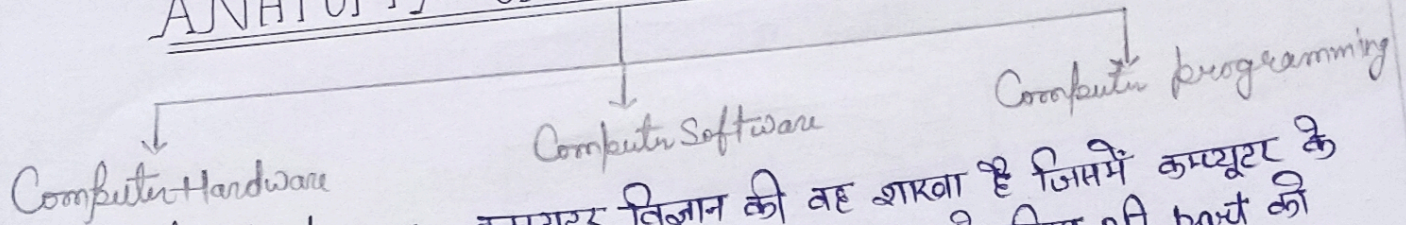 ANATOMY
Computer Hardware Computer Software Computer programming
कम्प्यूटर विज्ञान की वह शाखा है जिसमें कम्प्यूटर के
part को